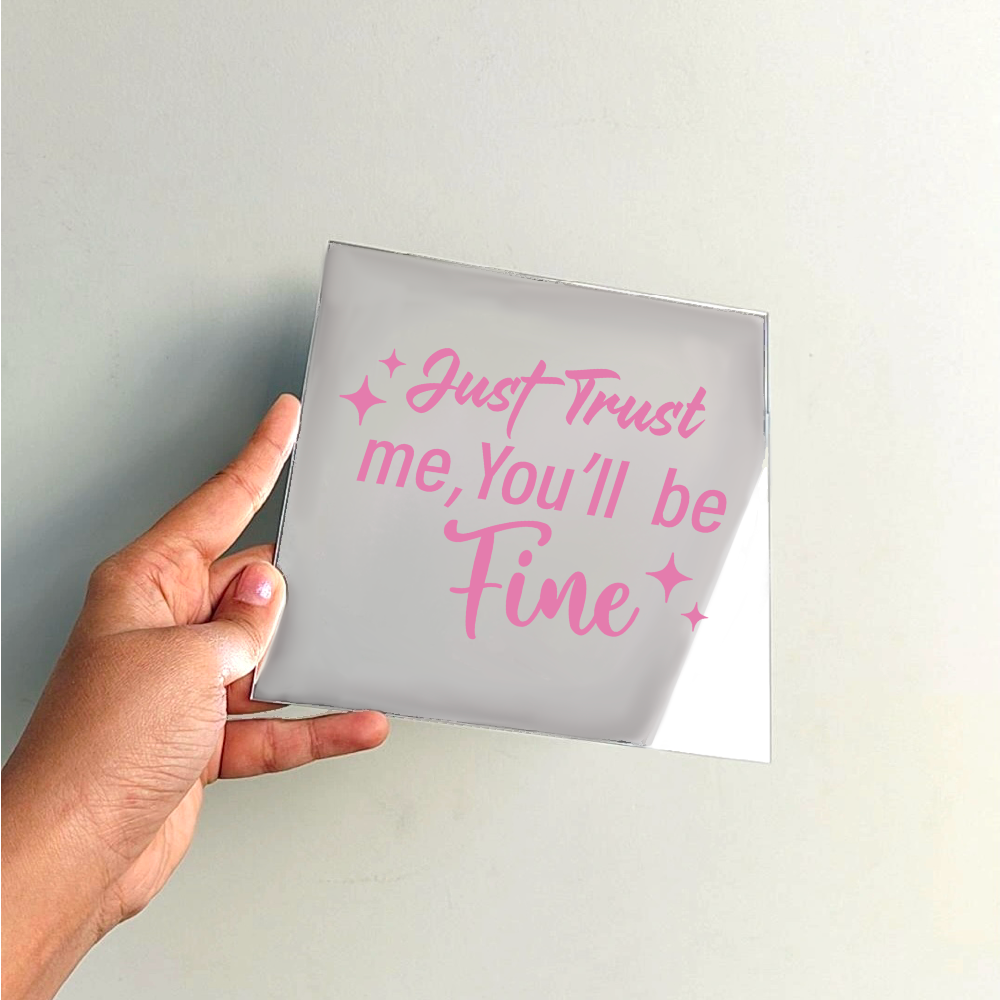 Just Trust
me, You'll be
Fine